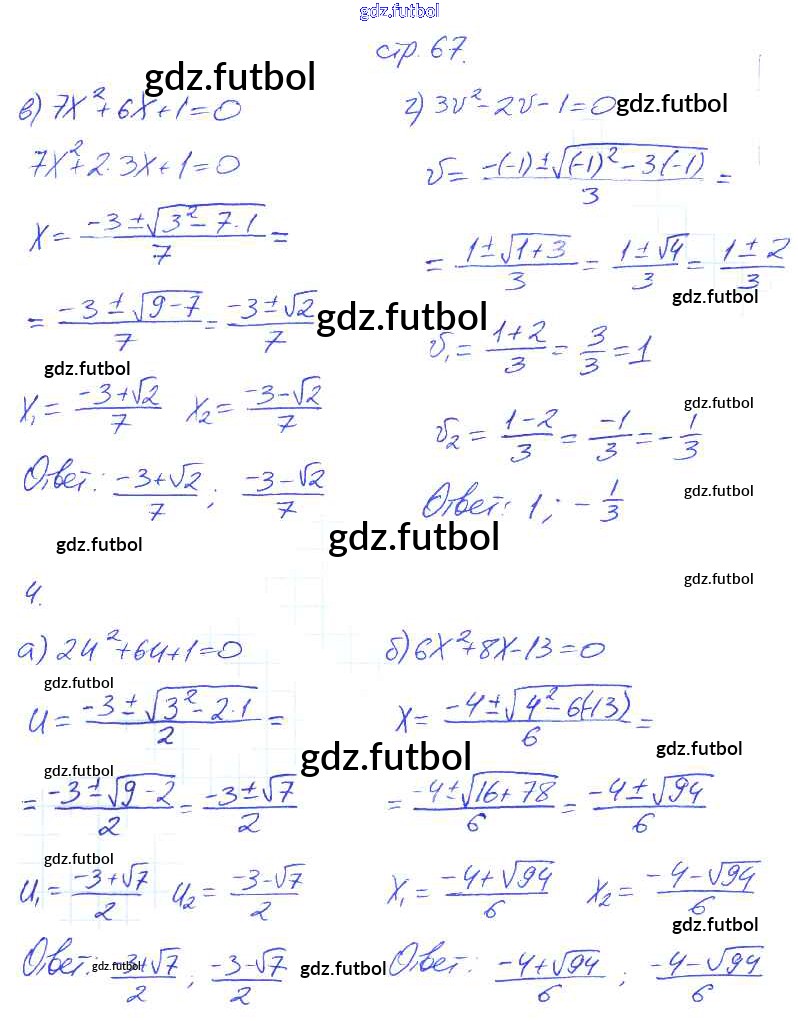 gdz.futbol
стр. 67.
gdz.futbol
в) 7x² + 6x + 1 = 0
7x² + 2·3x + 1 = 0
x = (-3 ± √(3² - 7·1))/7 =
= (-3 ± √(9 - 7))/7 = (-3 ± √2)/7
gdz.futbol
gdz.futbol
x₁ = (-3 + √2)/7 x₂ = (-3 - √2)/7
Ответ: (-3 + √2)/7 ; (-3 - √2)/7
gdz.futbol
г) 3v² - 2v - 1 = 0
gdz.futbol
v = (-(-1) ± √((-1)² - 3(-1)))/3 =
= (1 ± √(1 + 3))/3 = (1 ± √4)/3 = (1 ± 2)/3
gdz.futbol
v₁ = (1 + 2)/3 = 3/3 = 1
gdz.futbol
v₂ = (1 - 2)/3 = -1/3 = - 1/3
gdz.futbol
Ответ: 1 ; - 1/3
gdz.futbol
gdz.futbol
4.
а) 2u² + 6u + 1 = 0
gdz.futbol
u = (-3 ± √(3² - 2·1))/2 =
gdz.futbol
gdz.futbol
= (-3 ± √(9 - 2))/2 = (-3 ± √7)/2
gdz.futbol
u₁ = (-3 + √7)/2 u₂ = (-3 - √7)/2
Ответ: (-3 + √7)/2 ; (-3 - √7)/2
gdz.futbol
gdz.futbol
б) 6x² + 8x - 13 = 0
x = (-4 ± √(4² - 6(-13)))/6 =
gdz.futbol
= (-4 ± √(16 + 78))/6 = (-4 ± √94)/6
x₁ = (-4 + √94)/6 x₂ = (-4 - √94)/6
gdz.futbol
Ответ: (-4 + √94)/6 ; (-4 - √94)/6